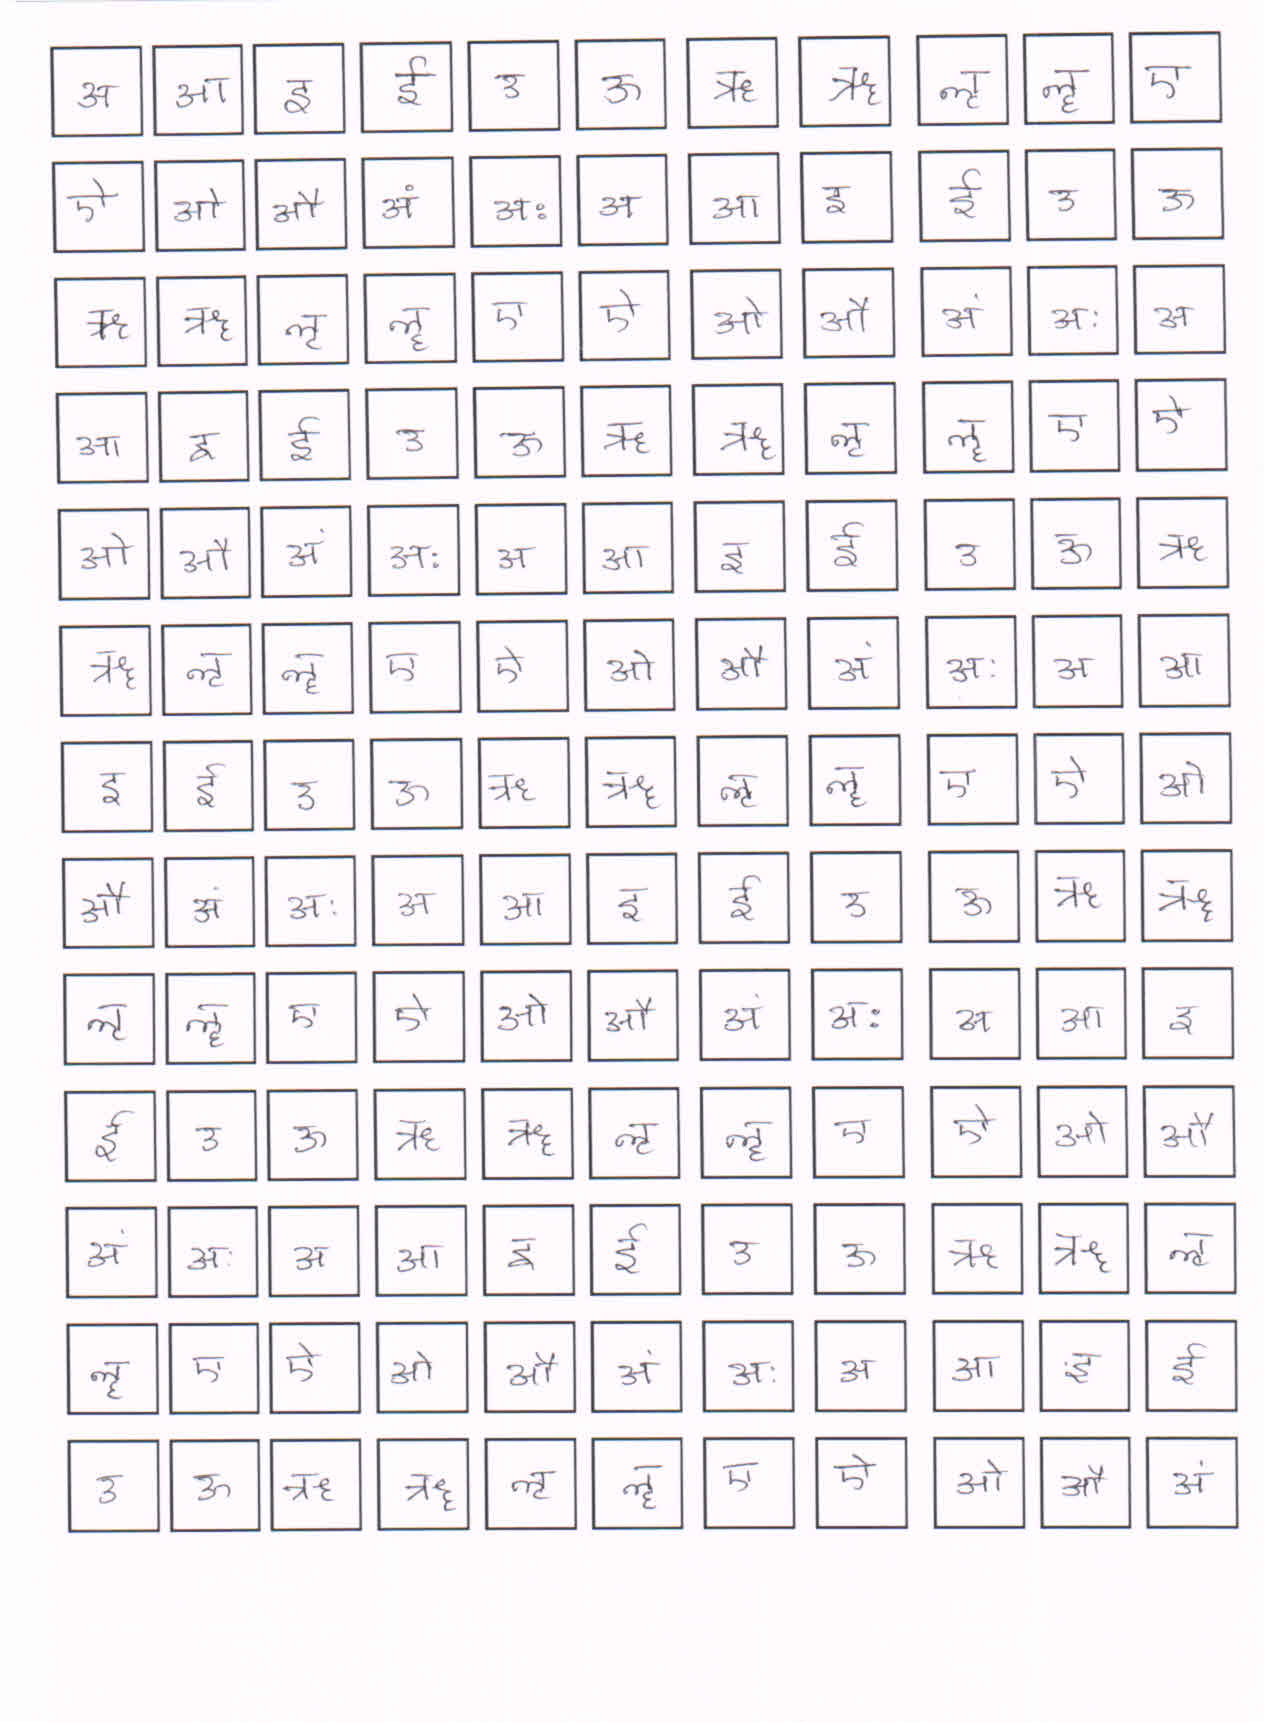 अ आ इ ई उ ऊ ऋ ॠ ऌ ॡ ए
ऐ ओ औ अं अः अ आ इ ई उ ऊ
ऋ ॠ ऌ ॡ ए ऐ ओ औ अं अः अ
आ इ ई उ ऊ ऋ ॠ ऌ ॡ ए ऐ
ओ औ अं अः अ आ इ ई उ ऊ ऋ
ॠ ऌ ॡ ए ऐ ओ औ अं अः अ आ
इ ई उ ऊ ऋ ॠ ऌ ॡ ए ऐ ओ
औ अं अः अ आ इ ई उ ऊ ऋ ॠ
ऌ ॡ ए ऐ ओ औ अं अः अ आ इ
ई उ ऊ ऋ ॠ ऌ ॡ ए ऐ ओ औ
अं अः अ आ इ ई उ ऊ ऋ ॠ ऌ
ॡ ए ऐ ओ औ अं अः अ आ इ ई
उ ऊ ऋ ॠ ऌ ॡ ए ऐ ओ औ अं